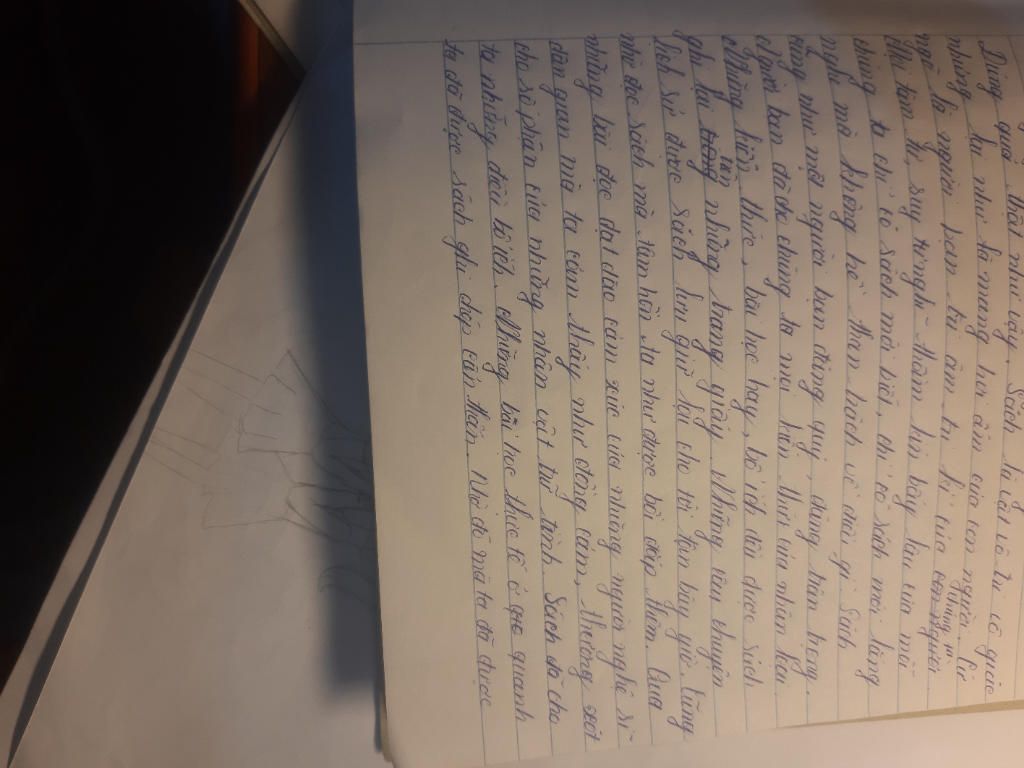 Đúng quá, thật như vậy, Sách là vật vô tri vô giác
nhưng lại như là mang hơi ấm của con người. Cứ
mỗi lần ngồi xem từ âm tư kí của
chúng
như tâm tư, suy tư nghĩ thầm kín bấy lâu của mà
chúng ta chỉ có sách mới biết, chỉ có sách mới lắng
nghe mà không hề than trách về điều gì. Sách
cũng như một người bạn đáng quý, đáng trân trọng.
Người bạn đó cho chúng ta mọi kiến thức của nhân loại
Những kiến thức, bài học hay, bổ ích đều được sách
ghi lại trên những trang giấy. Những câu chuyện
lịch sử được sách lưu giữ lại cho tới tận bây giờ. Cũng
nhờ đọc sách mà tâm hồn ta như được bồi đắp thêm. Qua
những bài đọc dạt dào cảm xúc của những người nghệ sĩ
dân gian mà ta cảm thấy như đồng cảm, thương xót
cho số phận của những nhân vật trữ tình. Sách đã cho
ta những điều bổ ích. Những bài học thực tế ở quanh
ta đã được sách ghi chép cẩn thận. Nhờ đó mà ta đã được